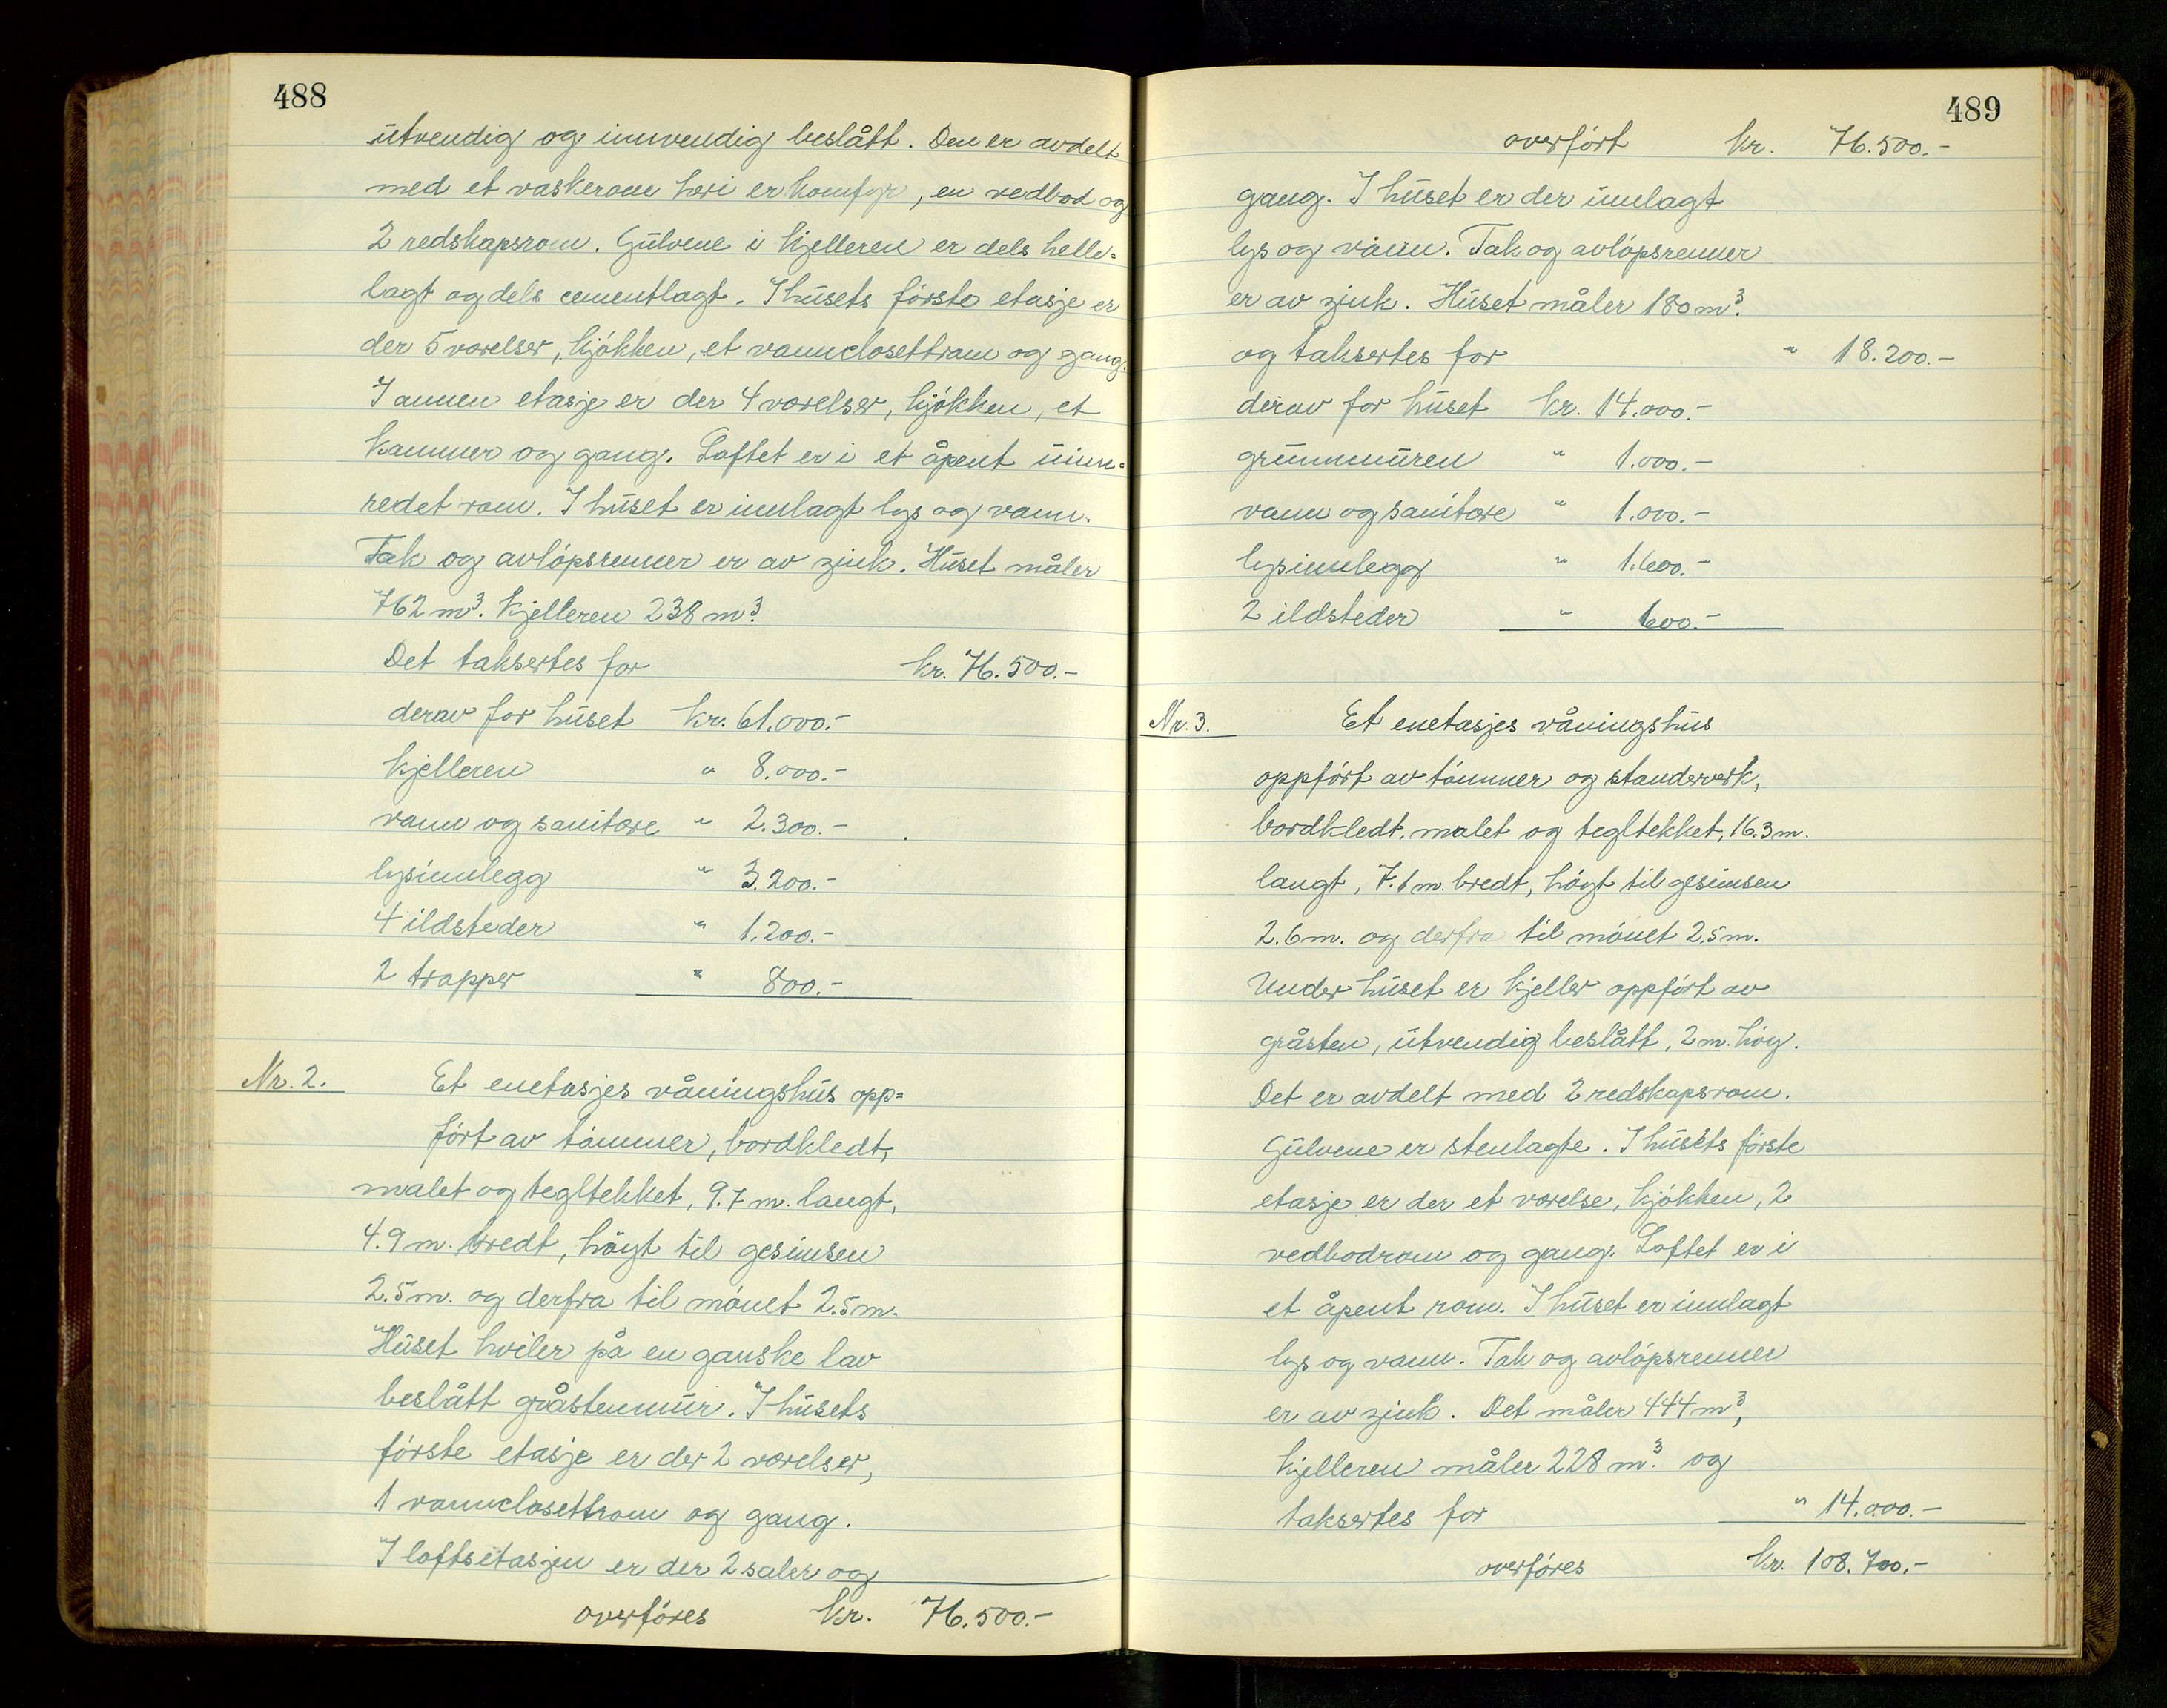 488
utvendig og innvendig beslått. Den er avdelt
med et vaskerom hvri er komfyr, en vedbod og
2 redskapsrom. Gulvene i kjelleren er dels helle=
lagt og dels cementlagt. I husets förste etasje er
der 5 værelser, kjökken, et vannclosettrom og gang.
I annen etasje er der 4 værelser, kjökken, et
kammer og gang. Loftet er i et åpent uinn=
redet rom. I huset er innlagt lys og vann.
Tak og avlöpsrenner er av zink. Huset måler
762 m³. Kjelleren 238 m³.
Det taksertes for kr. 76.500.-
derav for huset kr. 61.000.-
kjelleren " 8.000.-
vann og sanitære " 2.300.-
lysinnlegg " 3.200.-
4 ildsteder " 1.200.-
2 trapper " 800.-
Nr. 2. Et enetasjes våningshus opp=
fört av tömmer, bordkledt,
malet og tegltekket, 9.7 m. langt,
4.9 m. bredt, högt til gesimsen
2.5 m. og derfra til mönet 2.5 m.
Huset hviler på en ganske lav
beslått gråstenmur. I husets
förste etasje er der 2 værelser,
1 vannclosettrom og gang.
I loftsetasjen er der 2 saler og
overföres kr. 76.500.-
489
overfört kr. 76.500.-
gang. I huset er der innlagt
lys og vann. Tak og avlöpsrenner
er av zink. Huset måler 180 m³.
og taksertes for " 18.200.-
derav for huset kr. 14.000.-
grunnmuren " 1.000.-
vann og sanitære " 1.000.-
lysinnlegg " 1.600.-
2 ildsteder " 600.-
Nr. 3. Et enetasjes våningshus
oppfört av tömmer og standerverk,
bordkledt, malet og tegltekket, 16.3 m.
langt, 7.1 m. bredt, högt til gesimsen
2.6 m. og derfra til mönet 2.5 m.
Under huset er kjeller oppfört av
gråsten, utvendig beslått, 2 m. höy.
Det er avdelt med 2 redskapsrom.
Gulvene er stenlagte. I husets förste
etasje er der et værelse, kjökken, 2
vedbodrom og gang. Loftet er i
et åpent rom. I huset er innlagt
lys og vann. Tak og avlöpsrenner
er av zink. Det måler 444 m³,
kjelleren måler 228 m³. og
taksertes for " 14.000.-
overföres kr. 108.700.-